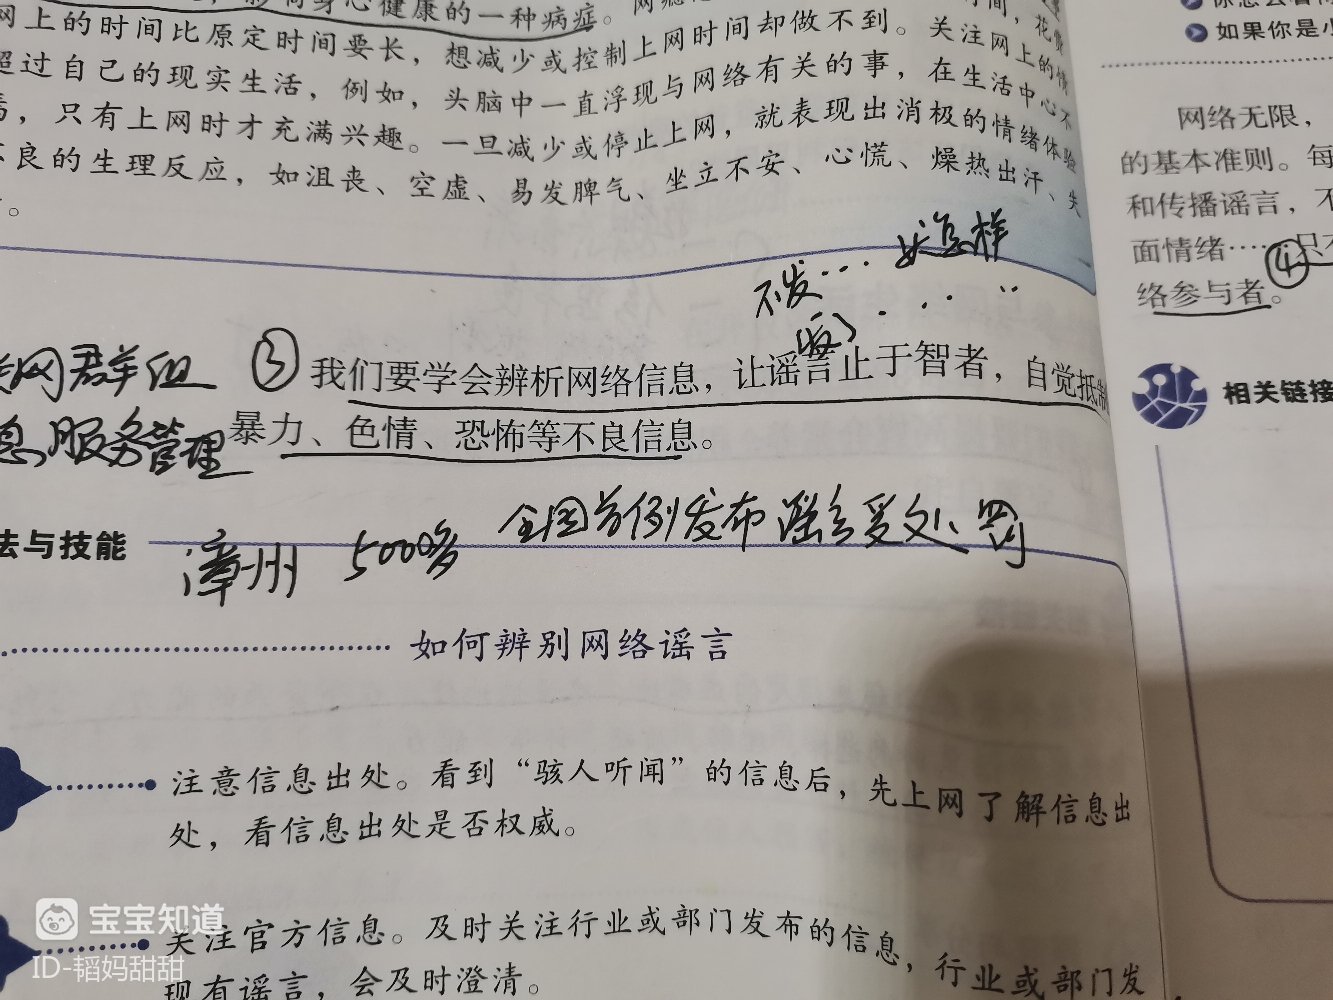 影响身心健康的一种病症。网瘾
网上的时间比原定时间要长，想减少或控制上网时间却做不到。关注网上的情
超过自己的现实生活，例如，头脑中一直浮现与网络有关的事，在生活中心不
焉，只有上网时才充满兴趣。一旦减少或停止上网，就表现出消极的情绪体验
不良的生理反应，如沮丧、空虚、易发脾气、坐立不安、心慌、燥热出汗、失
。
不发……要怎样
③我们要学会辨析网络信息，让谣言止于智者，自觉抵制
暴力、色情、恐怖等不良信息。
网群组
息服务管理
法与技能
漳州 5000多 全国首例发布谣言受处罚
如何辨别网络谣言
注意信息出处。看到“骇人听闻”的信息后，先上网了解信息出
处，看信息出处是否权威。
关注官方信息。及时关注行业或部门发布的信息，行业或部门发
现有谣言，会及时澄清。
如果你是小
网络无限，
的基本准则。每
和传播谣言，不
面情绪……④只有
络参与者。
相关链接
宝宝知道
ID-韬妈甜甜